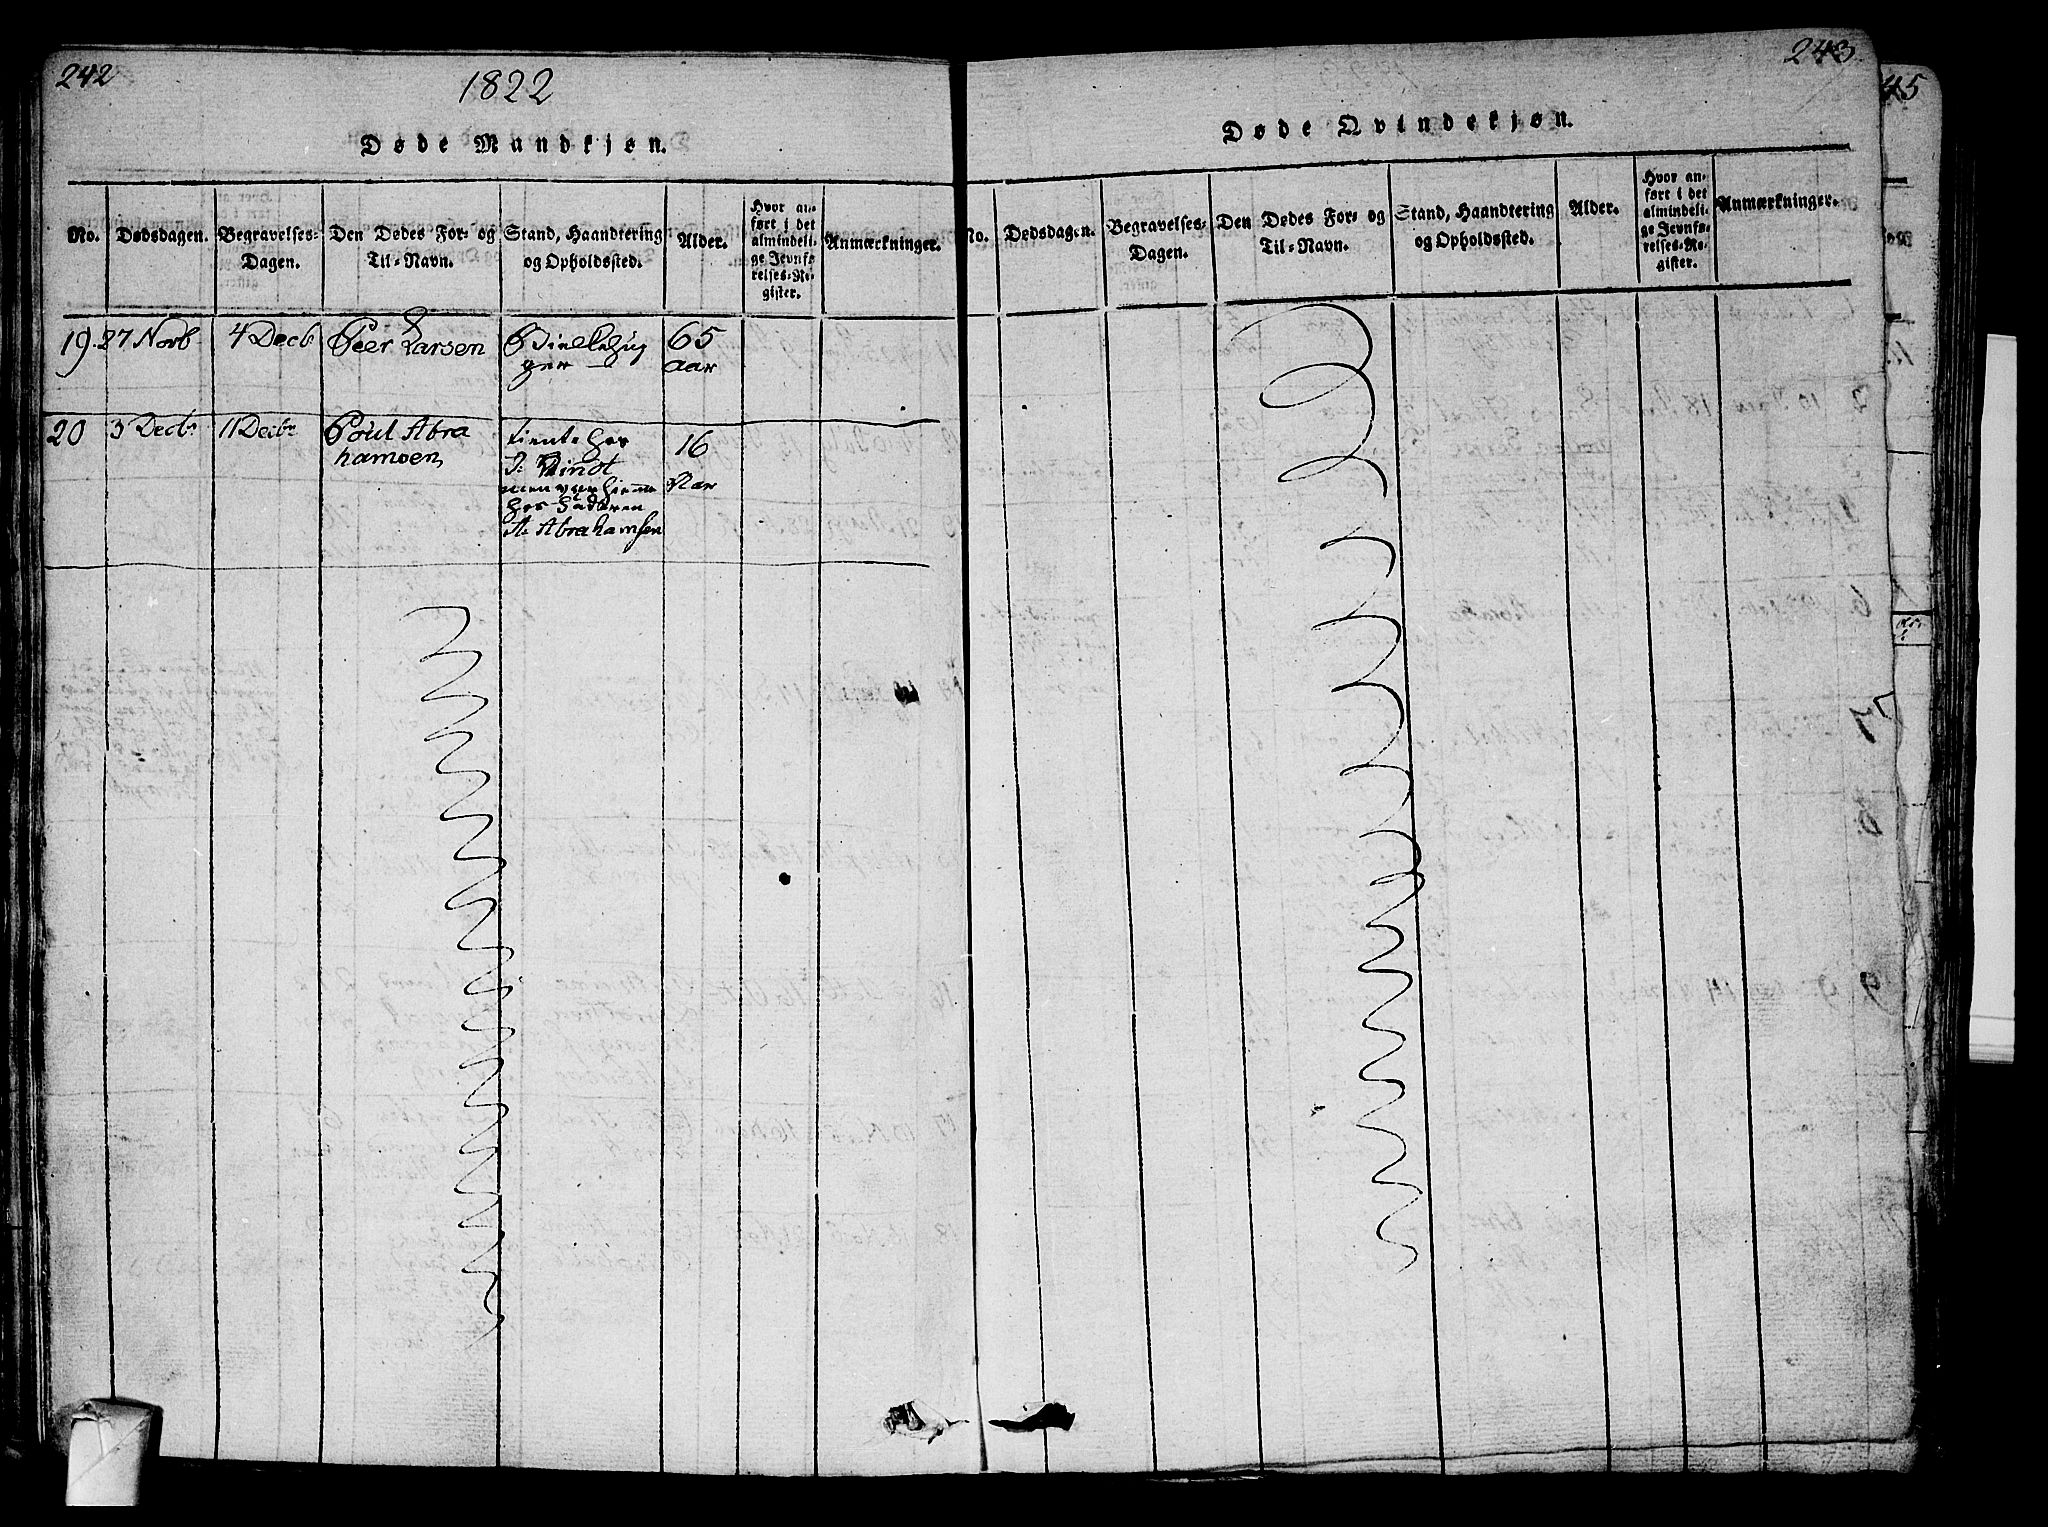 242
1822
Døde Mandkjøn.
No.
Dødsdagen.
Begravelses-
Dagen.
Den Dødes For- og
Til-Navn.
Stand, Haandtering
og Opholdssted.
Alder.
Hvor an-
ført i det
almindeli-
ge Jevnfø-
relses-Re-
gister.
Anmærkninger.
19. 27 Novb 4 Decb Peer Larsen 65
ger aar
20 3 Decbr 11 Decbr Poul Abra
hamsen, tiente hos 16
Aar
hos Faderen
A. Abrahamsen
243
Døde Qvindekjøn.
No.
Dødsdagen.
Begravelses-
Dagen.
Den Dødes For- og
Til-Navn.
Stand, Haandtering
og Opholdssted.
Alder.
Hvor an-
ført i det
almindeli-
ge Jevnfø-
relses-Re-
gister.
Anmærkninger.
45